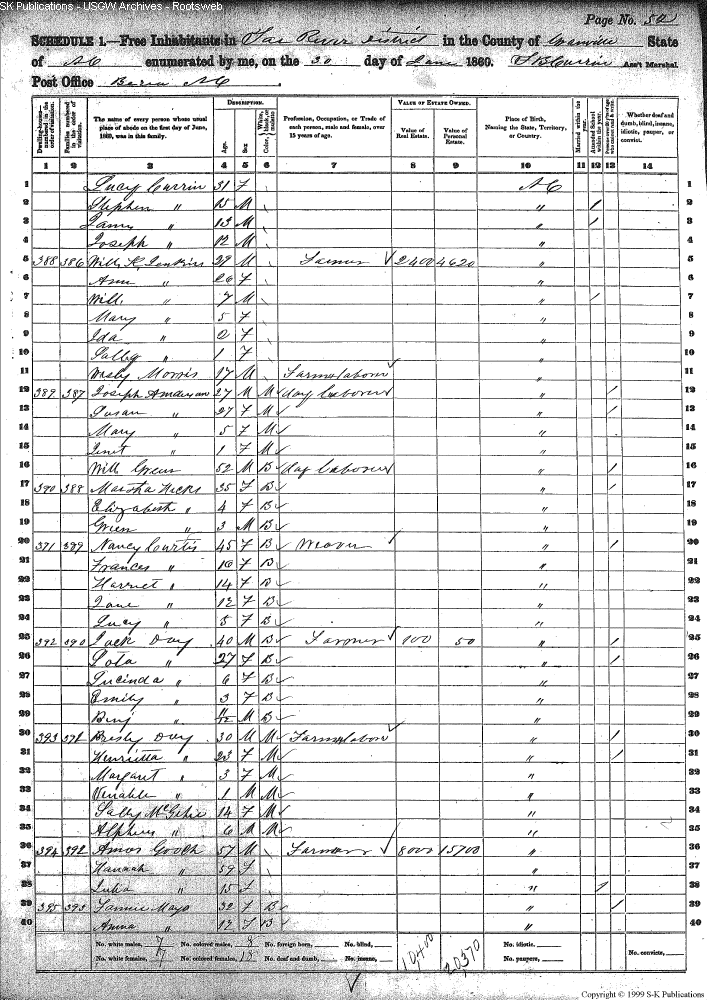 SK Publications - USGW Archives - Rootsweb
Page No. 52
SCHEDULE 1.—Free Inhabitants in Tar River District in the County of Granville State
of NC enumerated by me, on the 30 day of June 1860. Ass't Marshal.
Post Office Berea NC
Dwelling-houses numbered in the order of visitation. Families numbered in the order of visitation. The name of every person whose usual place of abode on the first day of June, 1860, was in this family. DESCRIPTION. Age. Sex. Color, White, black, or mulatto Profession, Occupation, or Trade of each person, male and female, over 15 years of age. VALUE OF ESTATE OWNED. Value of Real Estate. Value of Personal Estate. Place of Birth, Naming the State, Territory, or Country. Married within the year. Attended School within the year. Persons over 20 y'rs of age who cannot read & write. Whether deaf and dumb, blind, insane, idiotic, pauper, or convict.
1 2 3 4 5 6 7 8 9 10 11 12 13 14
1 Lucy Currin 31 F \ NC 1
2 Stephen " 15 M \ " / 2
3 James " 13 M " / 3
4 Joseph " 12 M \ " 4
5 388 386 Will. K. Jenkins 29 M \ Farmer 2400 4620 " 5
6 Ann " 26 F \ " 6
7 Will. " 7 M \ " / 7
8 Mary " 5 F \ " 8
9 Ida " 2 F \ " 9
10 Sally " 1 F \ " 10
11 Morris 17 M Farm laborer " 11
12 389 387 Joseph 27 M M day laborer " / 12
13 Susan " 27 F M " / 13
14 Mary " 5 F M " 14
15 " 1 F M " 15
16 Will Green 52 M B day laborer " / 16
17 390 388 Martha Hicks 35 F B " / 17
18 Elizabeth " 4 F B " 18
19 Green " 3 M B " 19
20 391 389 Nancy Curtis 45 F B Weaver " / 20
21 Frances " 16 F B " 21
22 Harriet " 14 F B " 22
23 Jane " 12 F B " 23
24 Lucy " 5 F B " 24
25 392 390 Jack Day 40 M B Farmer 100 50 " / 25
26 " 27 F B " / 26
27 Lucinda " 6 F B " 27
28 Emily " 3 F B " 28
29 Benj " M B " 29
30 393 391 Day 30 M M Farm labor " / 30
31 Henrietta " 23 F M " / 31
32 Margaret " 3 F M " 32
33 Venable " 1 M M " 33
34 Sally 14 F M " 34
35 Alpheus " 6 M M " 35
36 394 392 Amos Gooch 57 M Farmer 8000 15700 " 36
37 Hannah " 59 F " 37
38 Julia " 15 F " / 38
39 395 393 Fannie Mayo 32 F B " / 39
40 Anna " 12 F B " 40
No. white males, 7 No. colored males, 8 No. foreign born, No. blind, 10,400 20,370 No. idiotic. No. convicts,
No. white females, 7 No. colored females, 18 No. deaf and dumb, No. insane, No. paupers,
Copyright © 1999 S-K Publications